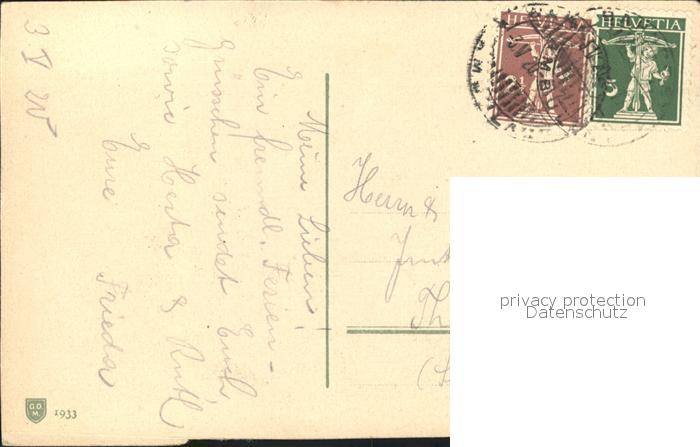 3 V 20
Meine Lieben!
Ein freundl. Ferien-
Grüsschen sendet Euch,
sowie Herta & Ruth
Eure
Frieda
HELVETIA
HELVETIA
Herrn &
Th
privacy protection
Datenschutz
G.O.
M.
1933